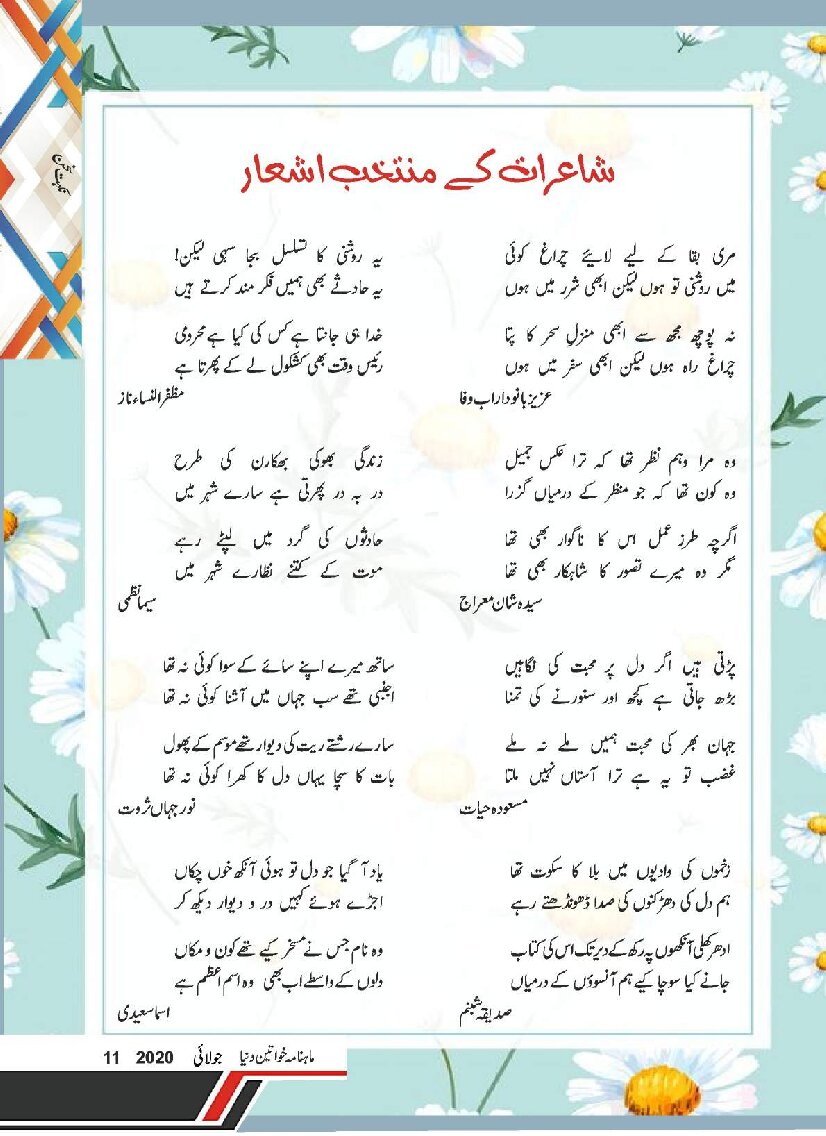 نکہت سخن
شاعرات کے منتخب اشعار
مری بقا کے لیے لائیے چراغ کوئی
میں روشنی تو ہوں لیکن ابھی شرر میں ہوں
نہ پوچھ مجھ سے ابھی منزل سحر کا پتا
چراغ راہ ہوں لیکن ابھی سفر میں ہوں
عزیز بانو داراب وفا
وہ مرا وہم نظر تھا کہ ترا عکس جمیل
وہ کون تھا کہ جو منظر کے درمیاں گزرا
اگرچہ طرز عمل اس کا ناگوار بھی تھا
مگر وہ میرے تصور کا شاہکار بھی تھا
سیدہ شان معراج
پڑتی ہیں اگر دل پر محبت کی نگاہیں
بڑھ جاتی ہے کچھ اور سنورنے کی تمنا
جہان بھر کی محبت ہمیں ملے نہ ملے
غضب تو یہ ہے ترا آستاں نہیں ملتا
مسعودہ حیات
زخموں کی وادیوں میں بلا کا سکوت تھا
ہم دل کی دھڑکنوں کی صدا ڈھونڈھتے رہے
ادھ کھلی آنکھوں پہ رکھ کے دیر تک اس کی کتاب
جانے کیا سوچا کیے ہم آنسوؤں کے درمیاں
صدیقہ شبنم
یہ روشنی کا تسلسل بجا سہی لیکن!
یہ حادثے بھی ہمیں فکر مند کرتے ہیں
خدا ہی جانتا ہے کس کی کیا ہے محرومی
رئیس وقت بھی کشکول لے کے پھرتا ہے
مظفر النساء ناز
زندگی بھوکی بھکارن کی طرح
در بہ در پھرتی ہے سارے شہر میں
حادثوں کی گرد میں لپٹے رہے
موت کے کتنے نظارے شہر میں
سیما نظمی
ساتھ میرے اپنے سائے کے سوا کوئی نہ تھا
اجنبی تھے سب جہاں میں آشنا کوئی نہ تھا
سارے رشتے ریت کی دیوار تھے موسم کے پھول
بات کا سچا یہاں دل کا کھرا کوئی نہ تھا
نور جہاں ثروت
یاد آ گیا جو دل تو ہوئی آنکھ خوں چکاں
اجڑے ہوئے کہیں در و دیوار دیکھ کر
وہ نام جس نے مسخر کیے تھے کون و مکاں
دلوں کے واسطے اب بھی وہ اسم اعظم ہے
اسما سعیدی
ماہنامہ خواتین دنیا جولائی 2020 11